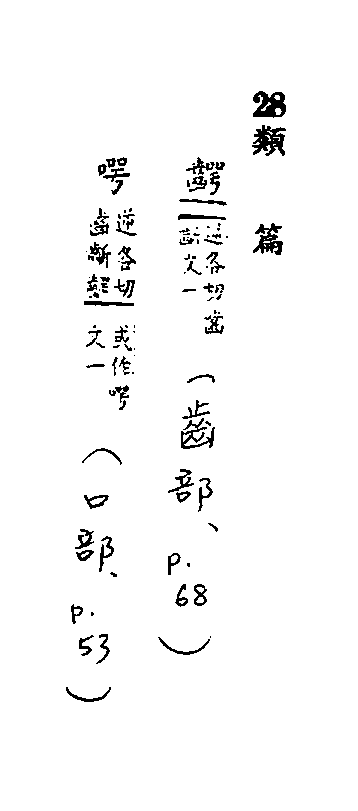 28類篇
齶 逆各切齒
齗文一
(齒部、p.68)
咢 逆各切
齒齗齶
或作
文一
(口部、p.53)